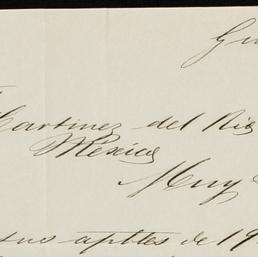 Martinez del Rio
Mexico
Muy
sus aptbles de 19